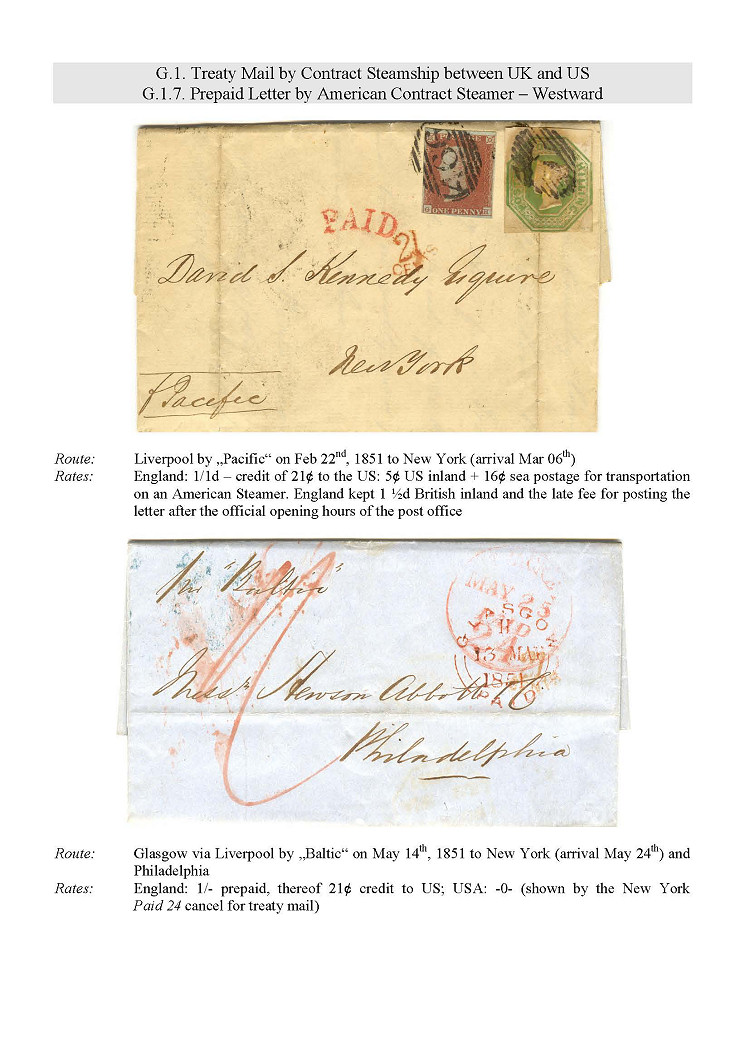 G.1. Treaty Mail by Contract Steamship between UK and US
G.1.7. Prepaid Letter by American Contract Steamer – Westward
ONE PENNY
PAID
David S. Kennedy Esquire
New York
Pacific
Route: Liverpool by „Pacific“ on Feb 22nd, 1851 to New York (arrival Mar 06th)
Rates: England: 1/1d – credit of 21¢ to the US: 5¢ US inland + 16¢ sea postage for transportation
on an American Steamer. England kept 1 ½d British inland and the late fee for posting the
letter after the official opening hours of the post office
"Baltic"
MAY 25
13 MAY
1851
PAID
Messrs Hewson Abbott & Co
Philadelphia
Route: Glasgow via Liverpool by „Baltic“ on May 14th, 1851 to New York (arrival May 24th) and
Philadelphia
Rates: England: 1/- prepaid, thereof 21¢ credit to US; USA: -0- (shown by the New York
Paid 24 cancel for treaty mail)